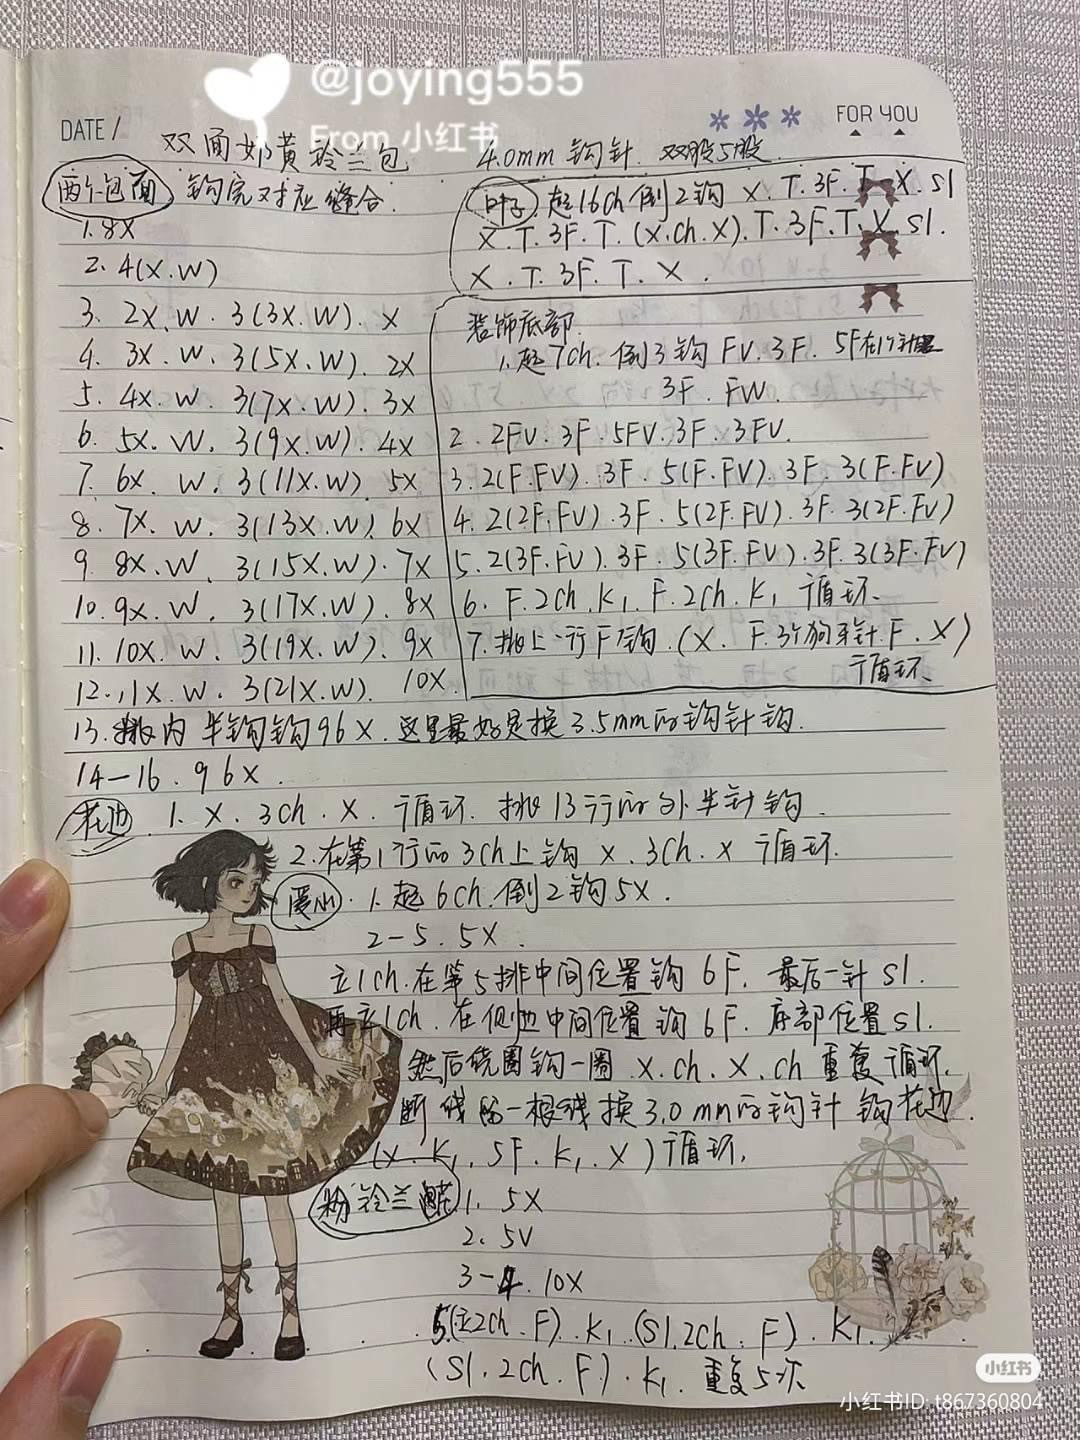 @joying555
From 小红书
DATE /
FOR YOU
双面奶黄铃兰包 4.0mm 钩针. 双股5股.
两个包面 钩完对应缝合.
1. 8X
2. 4(X.W)
3. 2X.W. 3(3X.W). X
4. 3X.W. 3(5X.W). 2X
5. 4X.W. 3(7X.W). 3X
6. 5X.W. 3(9X.W). 4X
7. 6X.W. 3(11X.W) 5X
8. 7X.W. 3(13X.W). 6X
9. 8X.W. 3(15X.W). 7X
10. 9X.W. 3(17X.W). 8X
11. 10X.W. 3(19X.W). 9X
12. 11X.W. 3(21X.W). 10X.
叶子. 起16ch 倒2钩 X.T.3F.T.X.sl
X.T.3F.T.(X.ch.X).T.3F.T.X.sl.
X.T.3F.T.X.
装饰底部.
1. 起7ch. 倒3钩 FV.3F. 5F在1个针里
3F. FW.
2. 2FV.3F.5FV.3F.3FV.
3. 2(F.FV).3F.5(F.FV).3F.3(F.FV)
4. 2(2F.FV).3F.5(2F.FV).3F.3(2F.FV)
5. 2(3F.FV).3F.5(3F.FV).3F.3(3F.FV)
6. F.2ch.K1.F.2ch.K1 循环.
7. 挑上一行F钩.(X.F.3个狗牙针.F.X)
循环.
13. 挑内半钩钩96X.这里最好是换3.5mm的钩针钩.
14—16. 96X.
花边. 1. X.3ch.X. 循环. 挑13行的外半针钩.
2. 在第1行的3ch上钩X.3ch.X 循环.
爱心. 1. 起6ch.倒2钩5X.
2—5. 5X.
立1ch.在第5排中间位置钩6F. 最后一针sl.
再立1ch. 在侧边中间位置钩6F. 底部位置sl.
然后绕圈钩一圈 X.ch.X.ch 重复循环.
断线 留一根线换3.0mm的钩针钩花边.
(X.K1.5F.K1.X)循环.
粉铃兰 1. 5X
2. 5V
3—4. 10X
5(立2ch.F).K1.(sl.2ch.F).K1.
(sl.2ch.F).K1. 重复5次
小红书
小红书ID: t867360804